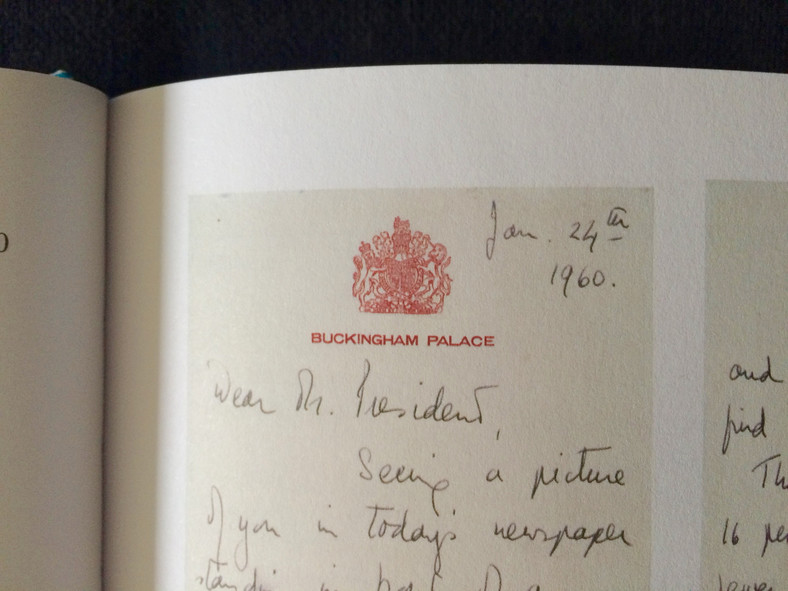 Jan. 24th
1960.
BUCKINGHAM PALACE
Dear Mr. President,
Seeing a picture
of you in today's newspaper
standing in front of a
and
find
Th
16 pe